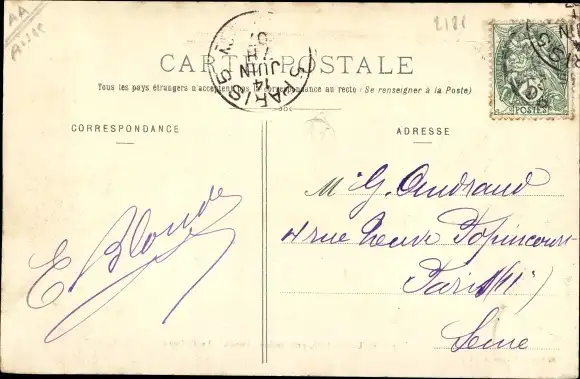 AA
Aisne
2182
CARTE POSTALE
Tous les pays étrangers n'acceptent pas la correspondance au recto (Se renseigner à la Poste)
PARIS
14
JUIN
07
POSTES
CORRESPONDANCE
ADRESSE
E Blonde
M G. Audraud
4 rue Neuve Popincourt
Paris (11)
Seine